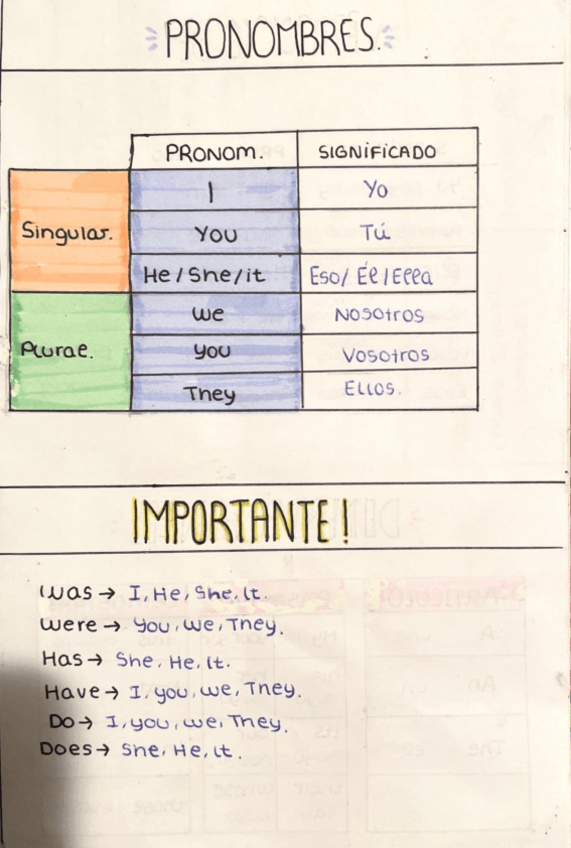 PRONOMBRES.
PRONOM. SIGNIFICADO
Singular. I Yo
You Tú
He/She/it Eso/ Él/Ella
We Nosotros
Plural. you Vosotros
They Ellos.
IMPORTANTE!
Was → I, He, She, It.
Were → You, We, They.
Has → She, He, It.
Have → I, you, we, They.
Do → I, you, we, They.
Does → She, He, It.